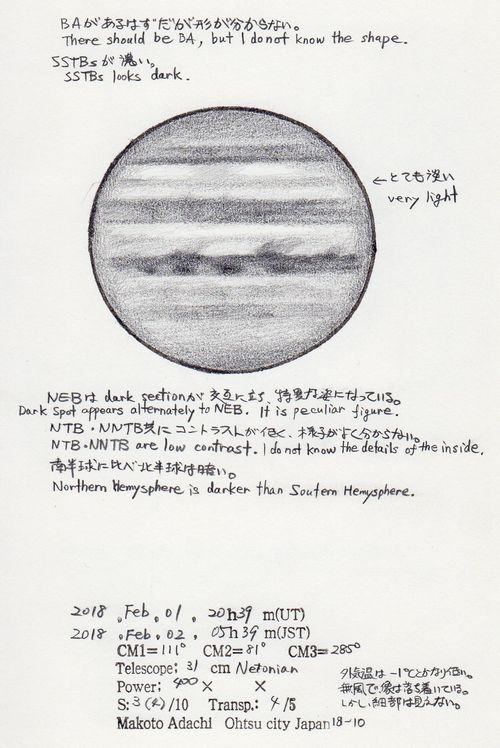 BAがあるはずだが形が分からない。
There should be BA, but I do not know the shape.
SSTBsが濃い。
SSTBs looks dark.
←とても淡い
very light
NEBは dark sectionが交互に立ち、特異な姿になっている。
Dark spot appears alternately to NEB. It is peculiar figure.
NTB・NNTB共にコントラストが低く、様子がよく分からない。
NTB・NNTB are low contrast. I do not know the details of the inside.
南半球に比べ北半球は暗い。
Northern Hemysphere is darker than Soutern Hemysphere.
2018 .Feb. 01 . 20h39 m(UT)
2018 .Feb. 02 . 05h39 m(JST)
CM1=111° CM2=81° CM3=285°
Telescope: 31 cm Netonian
Power: 400 × ×
S: 3 /10 Transp.: 4 /5
Makoto Adachi Ohtsu city Japan 18-10
外気温は-1℃とかなり低い。
無風で像は落ち着いている。
しかし、細部は見えない。